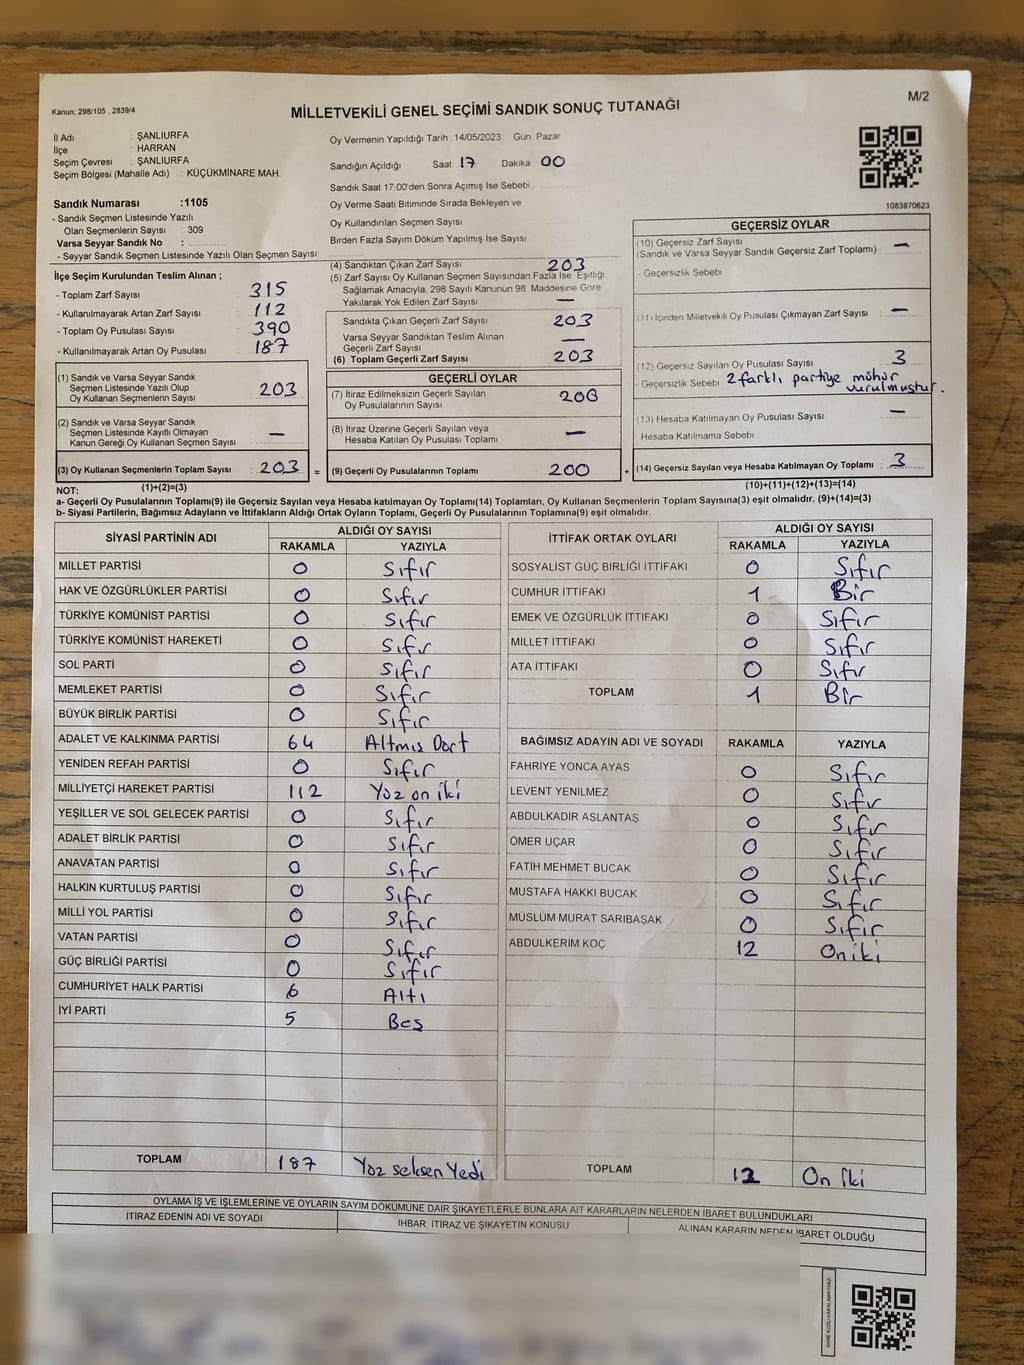 Kanun; 298/105 , 2839/4
MİLLETVEKİLİ GENEL SEÇİMİ SANDIK SONUÇ TUTANAĞI
M/2
İl Adı : ŞANLIURFA
İlçe : HARRAN
Seçim Çevresi : ŞANLIURFA
Seçim Bölgesi (Mahalle Adı) : KÜÇÜKMİNARE MAH.
Sandık Numarası :1105
- Sandık Seçmen Listesinde Yazılı
Olan Seçmenlerin Sayısı : 309
Varsa Seyyar Sandık No :
- Seyyar Sandık Seçmen Listesinde Yazılı Olan Seçmen Sayısı:
Oy Vermenin Yapıldığı Tarih 14/05/2023 Gün Pazar
Sandığın Açıldığı Saat 17 Dakika 00
Sandık Saat 17:00'den Sonra Açımış İse Sebebi
Oy Verme Saati Bitiminde Sırada Bekleyen ve
Oy Kullandırılan Seçmen Sayısı
Birden Fazla Sayım Döküm Yapılmış İse Sayısı
1083870623
İlçe Seçim Kurulundan Teslim Alınan ;
- Toplam Zarf Sayısı : 315
- Kullanılmayarak Artan Zarf Sayısı : 112
- Toplam Oy Pusulası Sayısı : 390
- Kullanılmayarak Artan Oy Pusulası : 187
(1) Sandık ve Varsa Seyyar Sandık
Seçmen Listesinde Yazılı Olup
Oy Kullanan Seçmenlerin Sayısı : 203
(2) Sandık ve Varsa Seyyar Sandık
Seçmen Listesinde Kayıtlı Olmayan
Kanun Gereği Oy Kullanan Seçmen Sayısı : —
(3) Oy Kullanan Seçmenlerin Toplam Sayısı : 203 =
(1)+(2)=(3)
(4) Sandıktan Çıkan Zarf Sayısı 203
(5) Zarf Sayısı Oy Kullanan Seçmen Sayısından Fazla İse, Eşitliği
Sağlamak Amacıyla, 298 Sayılı Kanunun 98. Maddesine Göre
Yakılarak Yok Edilen Zarf Sayısı —
Sandıkta Çıkan Geçerli Zarf Sayısı 203
Varsa Seyyar Sandıktan Teslim Alınan
Geçerli Zarf Sayısı —
(6) Toplam Geçerli Zarf Sayısı 203
GEÇERLİ OYLAR
(7) İtiraz Edilmeksizin Geçerli Sayılan
Oy Pusulalarının Sayısı 200
(8) İtiraz Üzerine Geçerli Sayılan veya
Hesaba Katılan Oy Pusulası Toplamı —
(9) Geçerli Oy Pusulalarının Toplamı 200 +
GEÇERSİZ OYLAR
(10) Geçersiz Zarf Sayısı
(Sandık ve Varsa Seyyar Sandık Geçersiz Zarf Toplamı) : —
- Geçersizlik Sebebi
(11) İçinden Milletvekili Oy Pusulası Çıkmayan Zarf Sayısı : —
(12) Geçersiz Sayılan Oy Pusulası Sayısı : 3
- Geçersizlik Sebebi 2 farklı partiye mühür
vurulmuştur.
(13) Hesaba Katılmayan Oy Pusulası Sayısı : —
Hesaba Katılmama Sebebi
(14) Geçersiz Sayılan veya Hesaba Katılmayan Oy Toplamı : 3
(10)+(11)+(12)+(13)=(14)
NOT:
a- Geçerli Oy Pusulalarının Toplamı(9) ile Geçersiz Sayılan veya Hesaba katılmayan Oy Toplamı(14) Toplamları, Oy Kullanan Seçmenlerin Toplam Sayısına(3) eşit olmalıdır. (9)+(14)=(3)
b- Siyasi Partilerin, Bağımsız Adayların ve İttifakların Aldığı Ortak Oyların Toplamı, Geçerli Oy Pusulalarının Toplamına(9) eşit olmalıdır.
SİYASİ PARTİNİN ADI ALDIĞI OY SAYISI
RAKAMLA YAZIYLA
MİLLET PARTİSİ 0 Sıfır
HAK VE ÖZGÜRLÜKLER PARTİSİ 0 Sıfır
TÜRKİYE KOMÜNİST PARTİSİ 0 Sıfır
TÜRKİYE KOMÜNİST HAREKETİ 0 Sıfır
SOL PARTİ 0 Sıfır
MEMLEKET PARTİSİ 0 Sıfır
BÜYÜK BİRLİK PARTİSİ 0 Sıfır
ADALET VE KALKINMA PARTİSİ 64 Altmış Dört
YENİDEN REFAH PARTİSİ 0 Sıfır
MİLLİYETÇİ HAREKET PARTİSİ 112 Yüz on iki
YEŞİLLER VE SOL GELECEK PARTİSİ 0 Sıfır
ADALET BİRLİK PARTİSİ 0 Sıfır
ANAVATAN PARTİSİ 0 Sıfır
HALKIN KURTULUŞ PARTİSİ 0 Sıfır
MİLLİ YOL PARTİSİ 0 Sıfır
VATAN PARTİSİ 0 Sıfır
GÜÇ BİRLİĞİ PARTİSİ 0 Sıfır
CUMHURİYET HALK PARTİSİ 6 Altı
İYİ PARTİ 5 Beş
TOPLAM 187 Yüz seksen Yedi
İTTİFAK ORTAK OYLARI ALDIĞI OY SAYISI
RAKAMLA YAZIYLA
SOSYALİST GÜÇ BİRLİĞİ İTTİFAKI 0 Sıfır
CUMHUR İTTİFAKI 1 Bir
EMEK VE ÖZGÜRLÜK İTTİFAKI 0 Sıfır
MİLLET İTTİFAKI 0 Sıfır
ATA İTTİFAKI 0 Sıfır
TOPLAM 1 Bir
BAĞIMSIZ ADAYIN ADI VE SOYADI RAKAMLA YAZIYLA
FAHRİYE YONCA AYAS 0 Sıfır
LEVENT YENİLMEZ 0 Sıfır
ABDULKADİR ASLANTAŞ 0 Sıfır
ÖMER UÇAR 0 Sıfır
FATİH MEHMET BUCAK 0 Sıfır
MUSTAFA HAKKI BUCAK 0 Sıfır
MÜSLÜM MURAT SARIBAŞAK 0 Sıfır
ABDULKERİM KOÇ 12 On iki
TOPLAM 12 On İki
OYLAMA İŞ VE İŞLEMLERİNE VE OYLARIN SAYIM DÖKÜMÜNE DAİR ŞİKAYETLERLE BUNLARA AİT KARARLARIN NELERDEN İBARET BULUNDUKLARI
İTİRAZ EDENİN ADI VE SOYADI İHBAR, İTİRAZ VE ŞİKAYETİN KONUSU ALINAN KARARIN NEDEN İBARET OLDUĞU